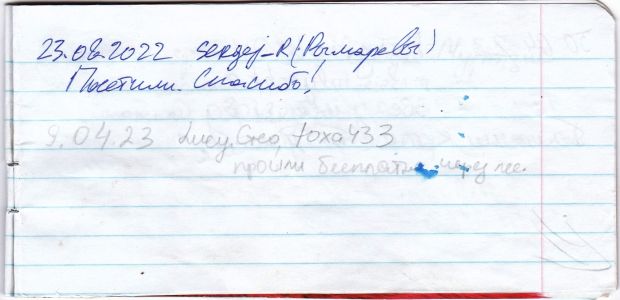 23.08.2022 sergej-R (Рымаревы)
Посетили. Спасибо!
9.04.23 Lucy.Greo, foxa433
прошли бесплатно через лес.